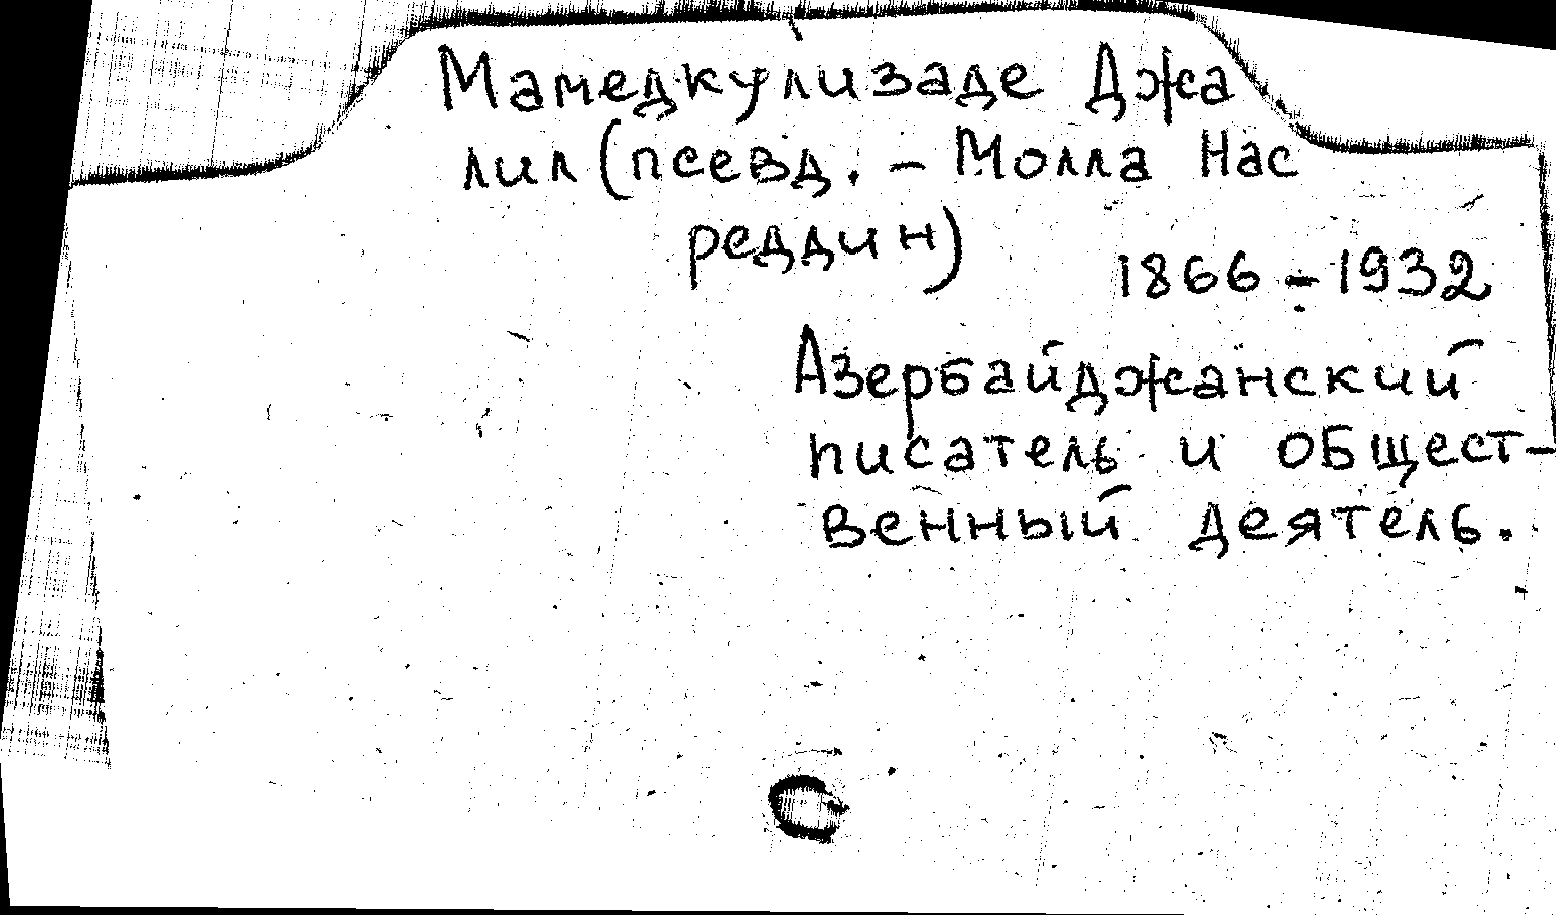 Мамедкулизаде Джа
лил (псевд. - Молла Нас
реддин)
1866 - 1932
Азербайджанский
писатель и общест-
венный деятель.